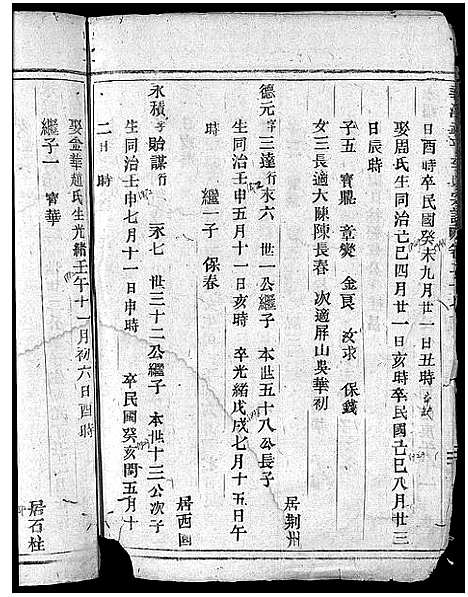 日酉時卒民國癸未九月廿一日丑時
娶周氏生同治己巳四月廿一日亥時卒民國己巳八月廿三
日辰時
子五 寶鼎 章燮 金良 汝求 保錢
女三長適大陳陳長春 次適屏山吳華初
居荆州
德元字三達行永六 世一公繼子 本世五十八公長子
生同治壬申五月十一日亥時 卒光緒戊戌七月十五日午
時 繼一子 保春
居西園
永積字貽謀行永七 世三十二公繼子 本世十三公次子
生同治壬申七月十一日申時 卒民國癸亥閏五月十
二日時
娶金華趙氏生光緒壬午十一月初六日酉時
繼子一 寶華
居石柱